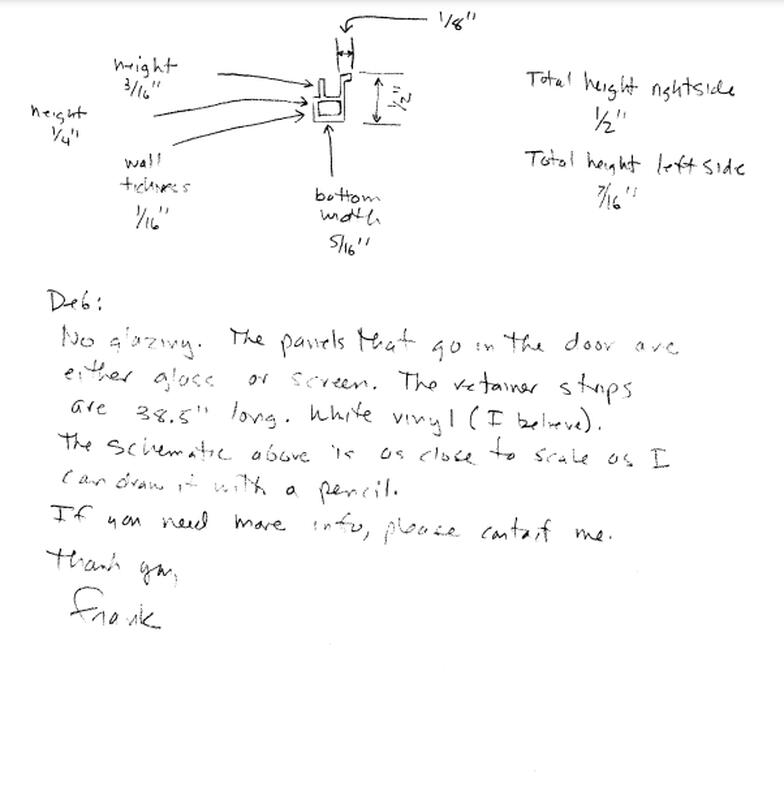 1/8"
height
3/16"
height
1/4"
wall
ticknes
1/16"
1/2"
bottom
width
5/16"
Total height rightside
1/2"
Total height left side
7/16"
Deb:
No glazing. The panels that go in the door are
either glass or screen. The retainer strips
are 38.5" long. White vinyl (I believe).
The schematic above is as close to scale as I
can draw it with a pencil.
If you need more info, please contact me.
Thank you,
Frank